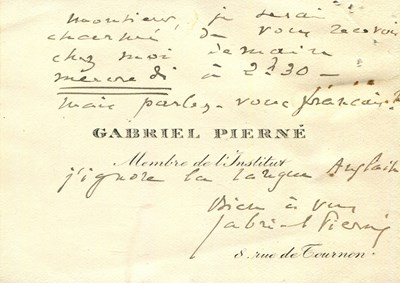 Monsieur, je serai
charmé de vous recevoir
chez moi
mercredi à 2h30 —
mais parlez-vous français ?
GABRIEL PIERNÉ
Membre de l'Institut
j'ignore la langue Anglaise
Bien à vous
Gabriel Pierné
8. rue de Tournon.